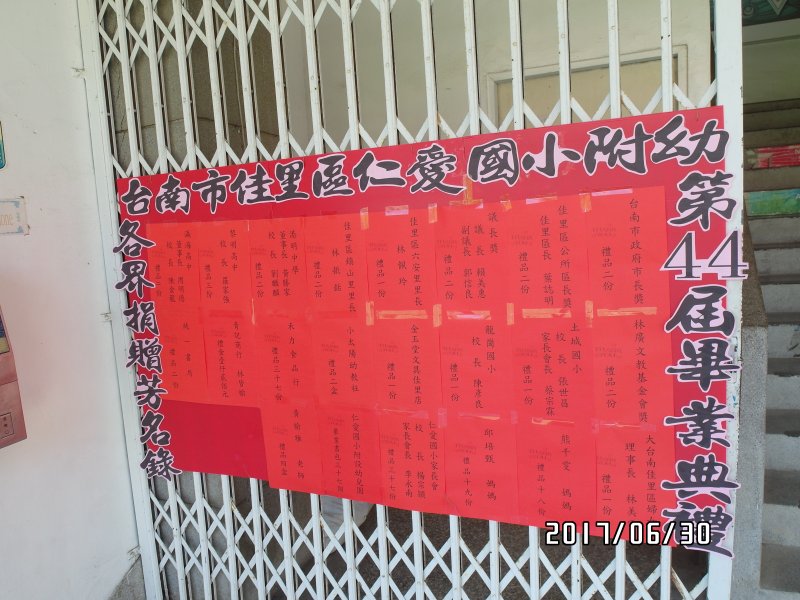 台南市佳里區仁愛國小附幼
第44屆畢業典禮
各界捐贈芳名錄
台南市政府市長獎
禮品二份
佳里區公所區長獎
佳里區長 葉誌明
禮品一份
議長獎
議長 賴美惠
副議長 郭信良
禮品二份
佳里區六安里里長
林佩玲
禮品一份
佳里區鎮山里里長
禮品二份
港明中學
董事長 黃勝家
校長
禮品二份
黎明高中
校長
禮品三份
董事長
校長
禮品二份
林廣文教基金會獎
禮品二份
土城國小
校長 張世昌
家長會長 蔡宗霖
禮品一份
龍崗國小
校長 陳彥良
禮品一份
金玉堂文具佳里店
禮品一份
小太陽幼教社
禮品二盒
禾力食品行
禮品三十七份
禮品二份
大台南佳里區婦
理事長 林美
禮品一份
熊千雯 媽媽
禮品十八份
邱培瑟 媽媽
禮品十九份
仁愛國小家長會
校長 楊宗穎
家長會長 李永南
禮品三十七份
仁愛國小附設幼兒園
畢業書包三十七個
老師
禮品四盒
2017/06/30